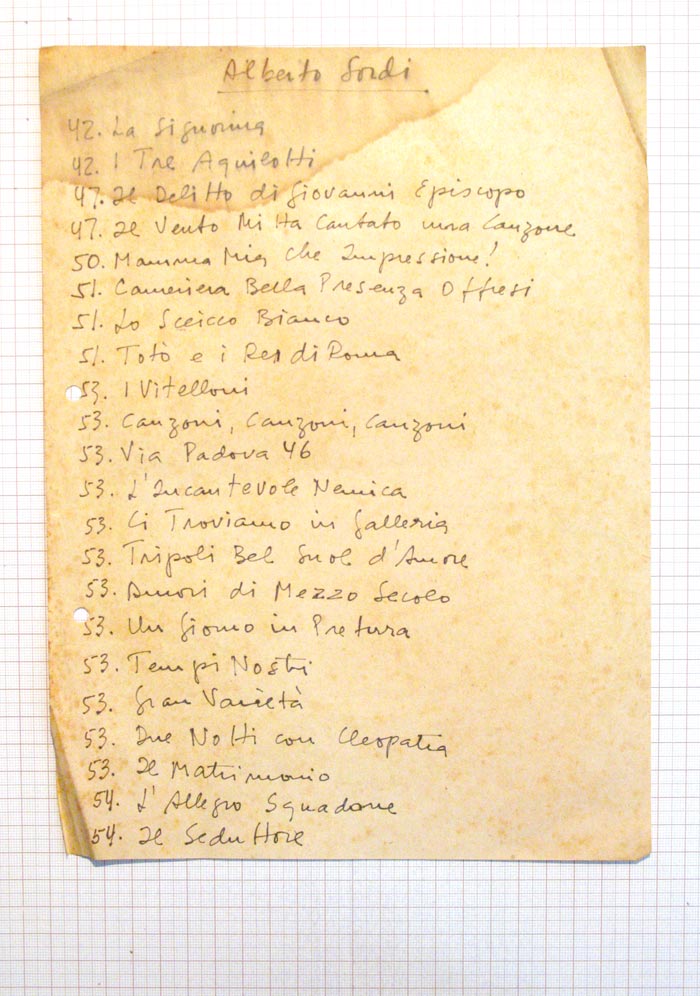 Alberto Sordi
42. La Signorina
42. I Tre Aquilotti
47. Il Delitto di Giovanni Episcopo
47. Il Vento Mi Ha Cantato una Canzone
50. Mamma Mia Che Impressione!
51. Cameriera Bella Presenza Offresi
51. Lo Sceicco Bianco
51. Totò e i Re di Roma
53. I Vitelloni
53. Canzoni, Canzoni, Canzoni
53. Via Padova 46
53. L'Incantevole Nemica
53. Ci Troviamo in Galleria
53. Tripoli Bel Suol d'Amore
53. Amori di Mezzo Secolo
53. Un Giorno in Pretura
53. Tempi Nostri
53. Gran Varietà
53. Due Notti con Cleopatra
53. Il Matrimonio
54. L'Allegro Squadrone
54. Il Seduttore